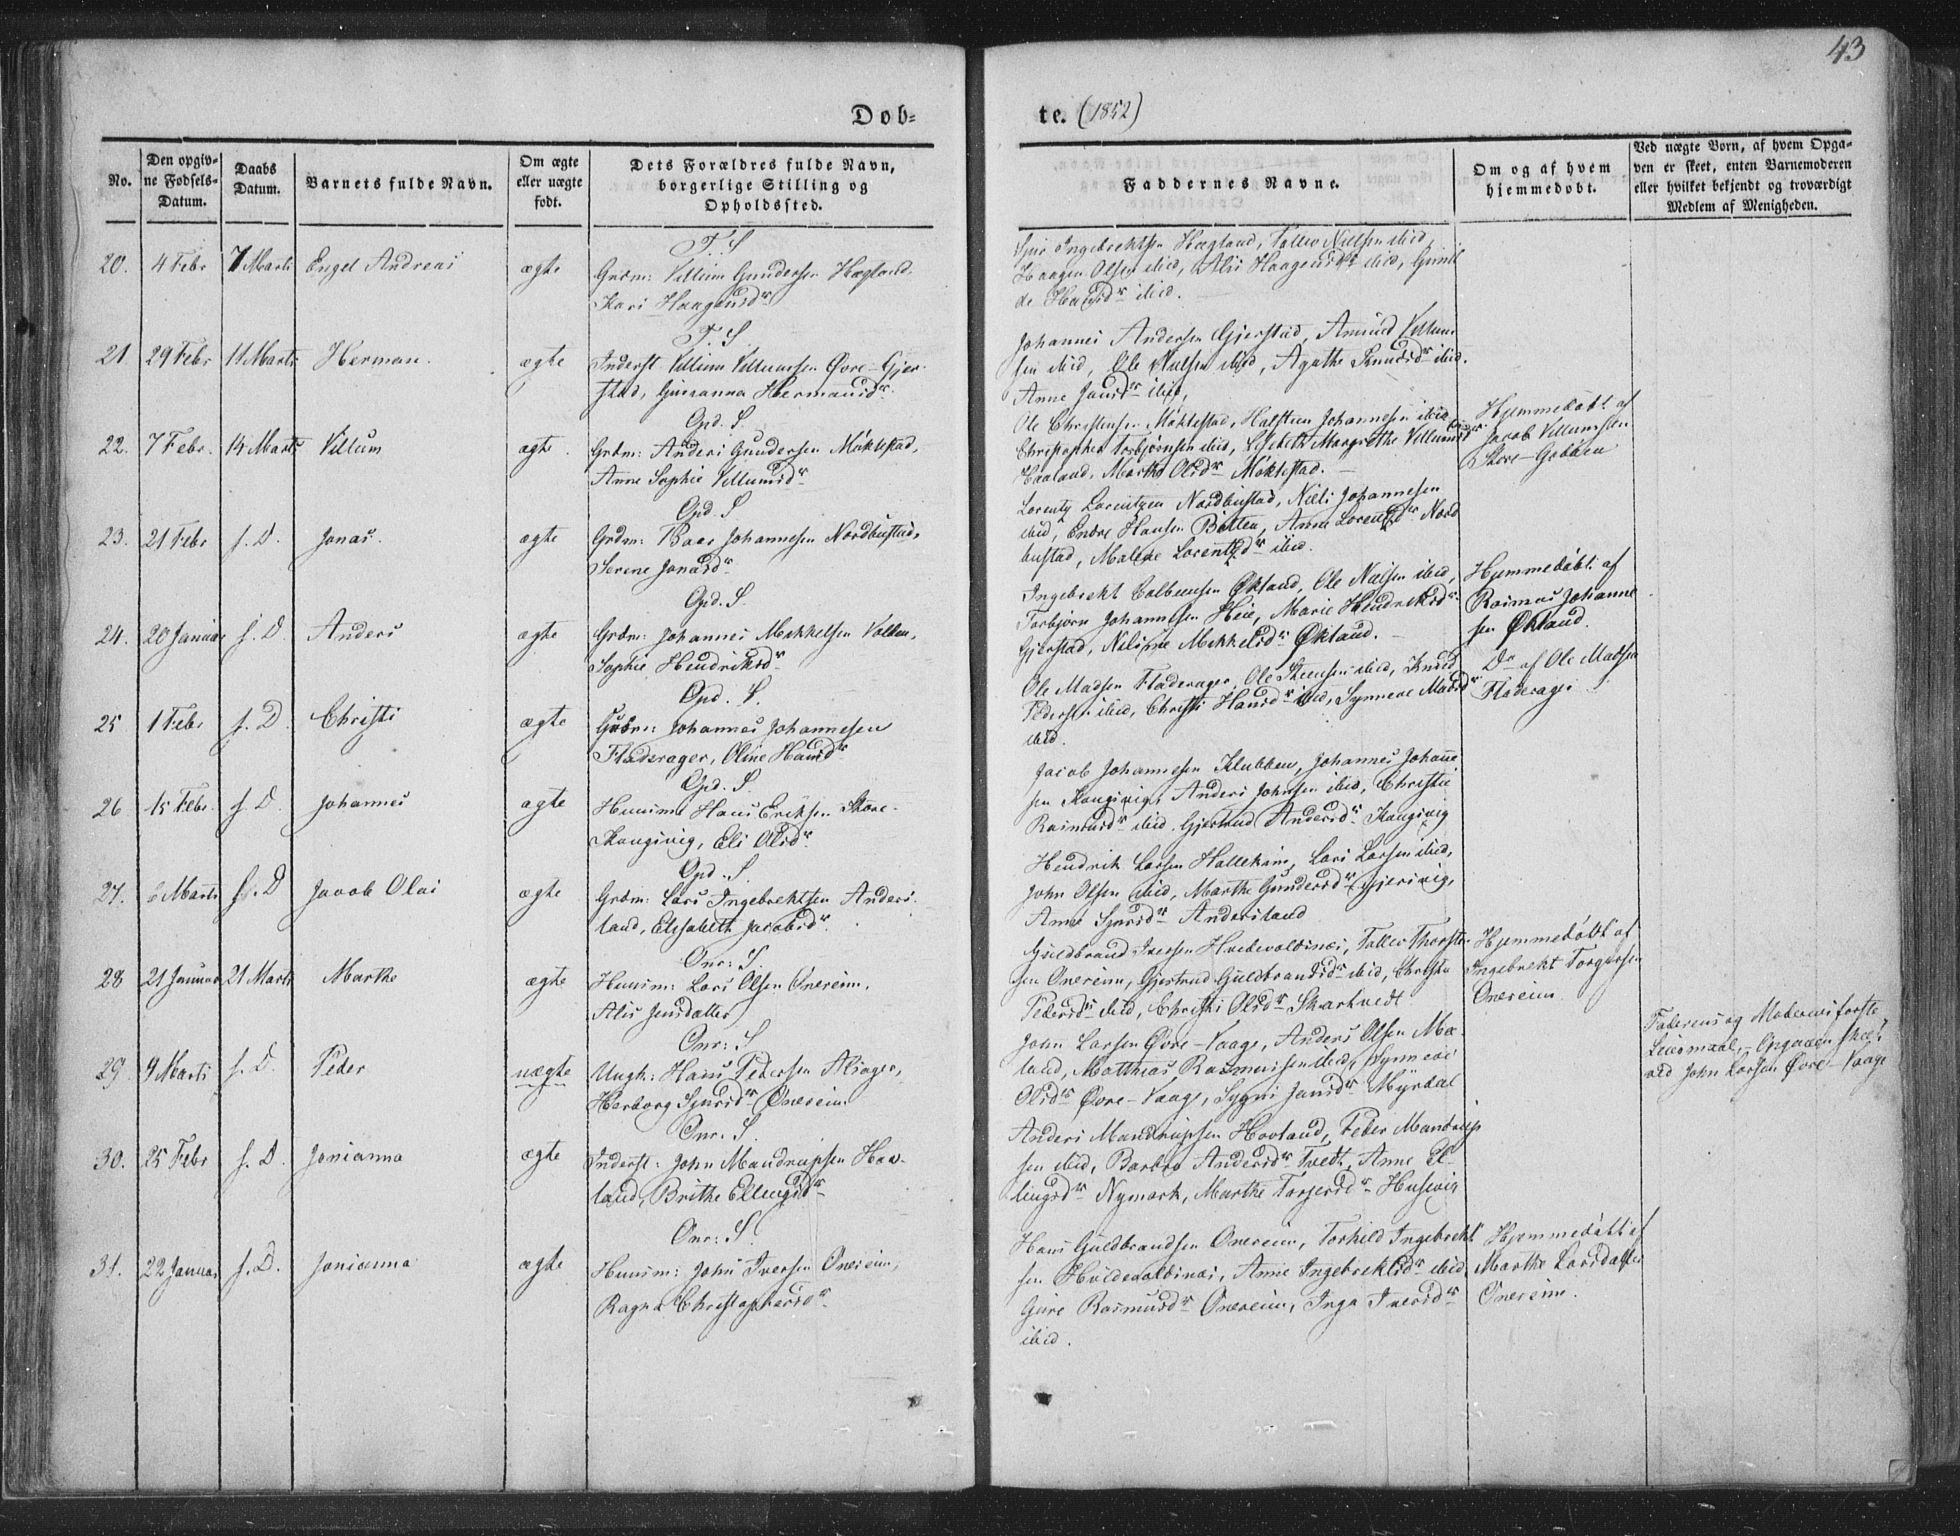 43
Døb-
te. (1852)
No.
Den opgiv-
ne Fødsels-
Datum.
Daabs
Datum.
Barnets fulde Navn.
Om ægte
eller uægte
født.
Dets Forældres fulde Navn,
borgerlige Stilling og
Opholdssted.
Faddernes Navne.
Om og af hvem
hjemmedøbt.
Ved uægte Børn, af hvem Opga-
ven er skeet, enten Barnemoderen
eller hvilket bekjendt og troværdigt
Medlem af Menigheden.
T. S
20. 4 Febr 7 Marts Engel Andreas ægte Grdm: Villum Gundersen Hægland
Kari Haagensdr
Ingebrektsen Hægland, Tallev Nielsen ibid,
Haagen Olsen ibid, Alis Haagensdr ibid, Gunil
de ibid.
T. S.
21 29 Febr 11 Marts Herman. ægte Inderst Villum Villumsen Øvre-Gjer-
stad, Hermansdr
Johannes Andersen Gjerstad, Amund Villum
sen ibid, Ole Nielsen ibid, Agathe Knudsdr ibid.
Anne Jansdr ibid,
Gpd. S.
22. 7 Febr. 14 Marts Villum ægte. Grdm: Anders Gundersen Møklestad,
Anne Sophie Villumsdr
Ole Christensen Møklestad, Halsteen Johannesen ibid
Christopher Torbjørnsen ibid, Margrethe Villumsdr
Haaland, Marthe Olsdr Møklestad.
Hjemmedøbt af
Jacob Villumsen
Store-Gobben
Gpd. S
23. 21 Febr s. D. Jonas. ægte Grdm: Johannesen Nordbustad,
Serene Jonasdr
Lorentz Lorentzen Nordbustad, Niels Johannesen
ibid, Endre Hansen Botten, Anne Lorentzdr Nord
bustad, Malene Lorentzdr ibid.
Gpd. S.
24. 20 Januar s. D. Anders ægte Grdm: Johannes Mekkelsen Vollen,
Sophie Hendriksdr
Ingebrekt Økland, Ole Nielsen ibid,
Torbjørn Johannesen Heie, Marie Hendriksdr
Gjerstad, Mekkelsdr Økland.
Hjemmedøbt af
Rasmus Johanne
sen Økland.
Gpd. S.
25 1 Febr s. D. Christi ægte Grdm: Johannes Johannesen
Fladerager, Oline Hansdr
Ole Madsen Fladerager, Ole Steensen ibid, Knud
Pedersen ibid, Christi Hansdr ibid, Synneve Madsdr
ibid.
Do af Ole Madsen
Fladerager
Gpd. S.
26 15 Febr. s. D. Johannes ægte Huusm: Hans Eriksen Store-
Kongsvig, Eli Olsdr
Jacob Johannesen Klubben, Johannes Johanne
sen Kongsvig, Anders Johnsen ibid, Christie
Rasmusdr ibid. Gjertrud Andersdr Kongsvig
Gpd. S.
27. 6 Marts s. D Jacob Olai ægte Grdm: Lars Ingebrektsen Anders-
land, Elisabeth Jacobsdr
Hendrik Larsen Hallekim, Lars Larsen ibid,
John Olsen ibid, Marthe Gundersdr Gjersvig,
Anne Sjursdr Andersland
Onr: S.
28 21 Januar 21 Marts Marthe ægte Huusm: Lars Olsen Onereim,
Alis Jensdatter
Guldbrand Iversen Hvidevoldsnæs, Tallev Thorste-
sen Onereim, Gjertrud Guldbrandsdr ibid, Christi
Pedersdr ibid, Christi Olsdr Skartvedt
Hjemmedøbt af
Ingebrekt Torgersen
Onereim
Onr: S
29. 9 Marts s. D. Peder uægte Ungk: Hans Pedersen Alsager,
Herborg Sjursdr Onereim
John Larsen Øvre-Vaage, Anders Olsen Mæ
land, Matthias Rasmussen ibid, Synneve
Olsdr Øvre-Vaage, Sygni Jansdr Myrdal
Faderens og Moderens første
Leiermaal, - Opgaven skeet
ved John Larsen Øvre-Vaage
Onr: S.
30. 25 Febr s. D. Jonianna ægte Inderst: John Mandrupsen Hov-
land, Brithe Ellingsdr
Anders Mandrupsen Hovland, Peder Mandrup
sen ibid, Barbro Andersdr Tvedt, Anne El-
lingsdr Nymark, Marthe Torgersdr Husevig
Onr: S.
31. 22 Januar s. D. Jonianna ægte Huusm: John Iversen Onereim,
Ragna Christophersdr
Hans Guldbrandsen Onereim, Torkild Ingebrekt
sen Hvidevoldsnæs, Anne Ingebrektsdr ibid,
Gure Rasmusdr Onereim, Inga Iversdr
ibid.
Hjemmedøbt af
Marthe Larsdatter
Onereim.